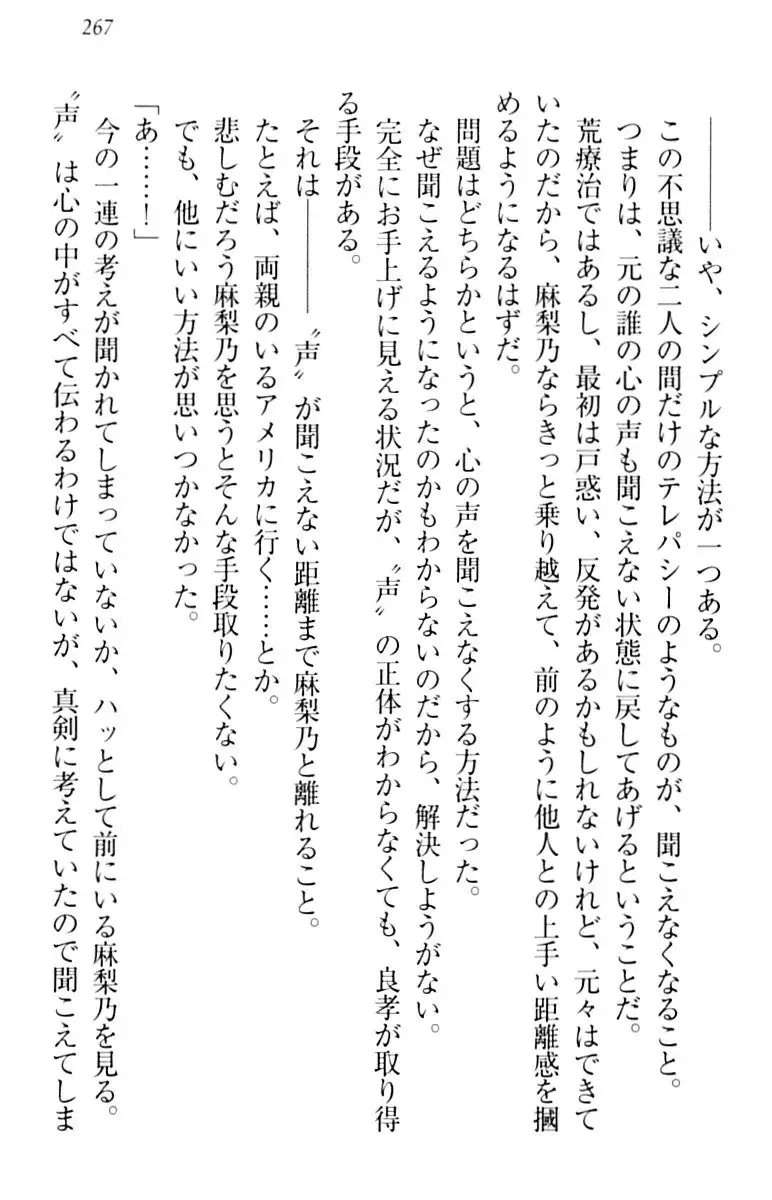 267
――――いや、シンプルな方法が一つある。
この不思議な二人の間だけのテレパシーのようなものが、聞こえなくなること。
つまりは、元の誰の心の声も聞こえない状態に戻してあげるということだ。
荒療治ではあるし、最初は戸惑い、反発があるかもしれないけれど、元々はできて
いたのだから、麻梨乃ならきっと乗り越えて、前のように他人との上手い距離感を摑
めるようになるはずだ。
問題はどちらかというと、心の声を聞こえなくする方法だった。
なぜ聞こえるようになったのかもわからないのだから、解決しようがない。
完全にお手上げに見える状況だが、〝声〟の正体がわからなくても、良孝が取り得
る手段がある。
それは――――〝声〟が聞こえない距離まで麻梨乃と離れること。
たとえば、両親のいるアメリカに行く……とか。
悲しむだろう麻梨乃を思うとそんな手段取りたくない。
でも、他にいい方法が思いつかなかった。
「あ……！」
今の一連の考えが聞かれてしまっていないか、ハッとして前にいる麻梨乃を見る。
〝声〟は心の中がすべて伝わるわけではないが、真剣に考えていたので聞こえてしま